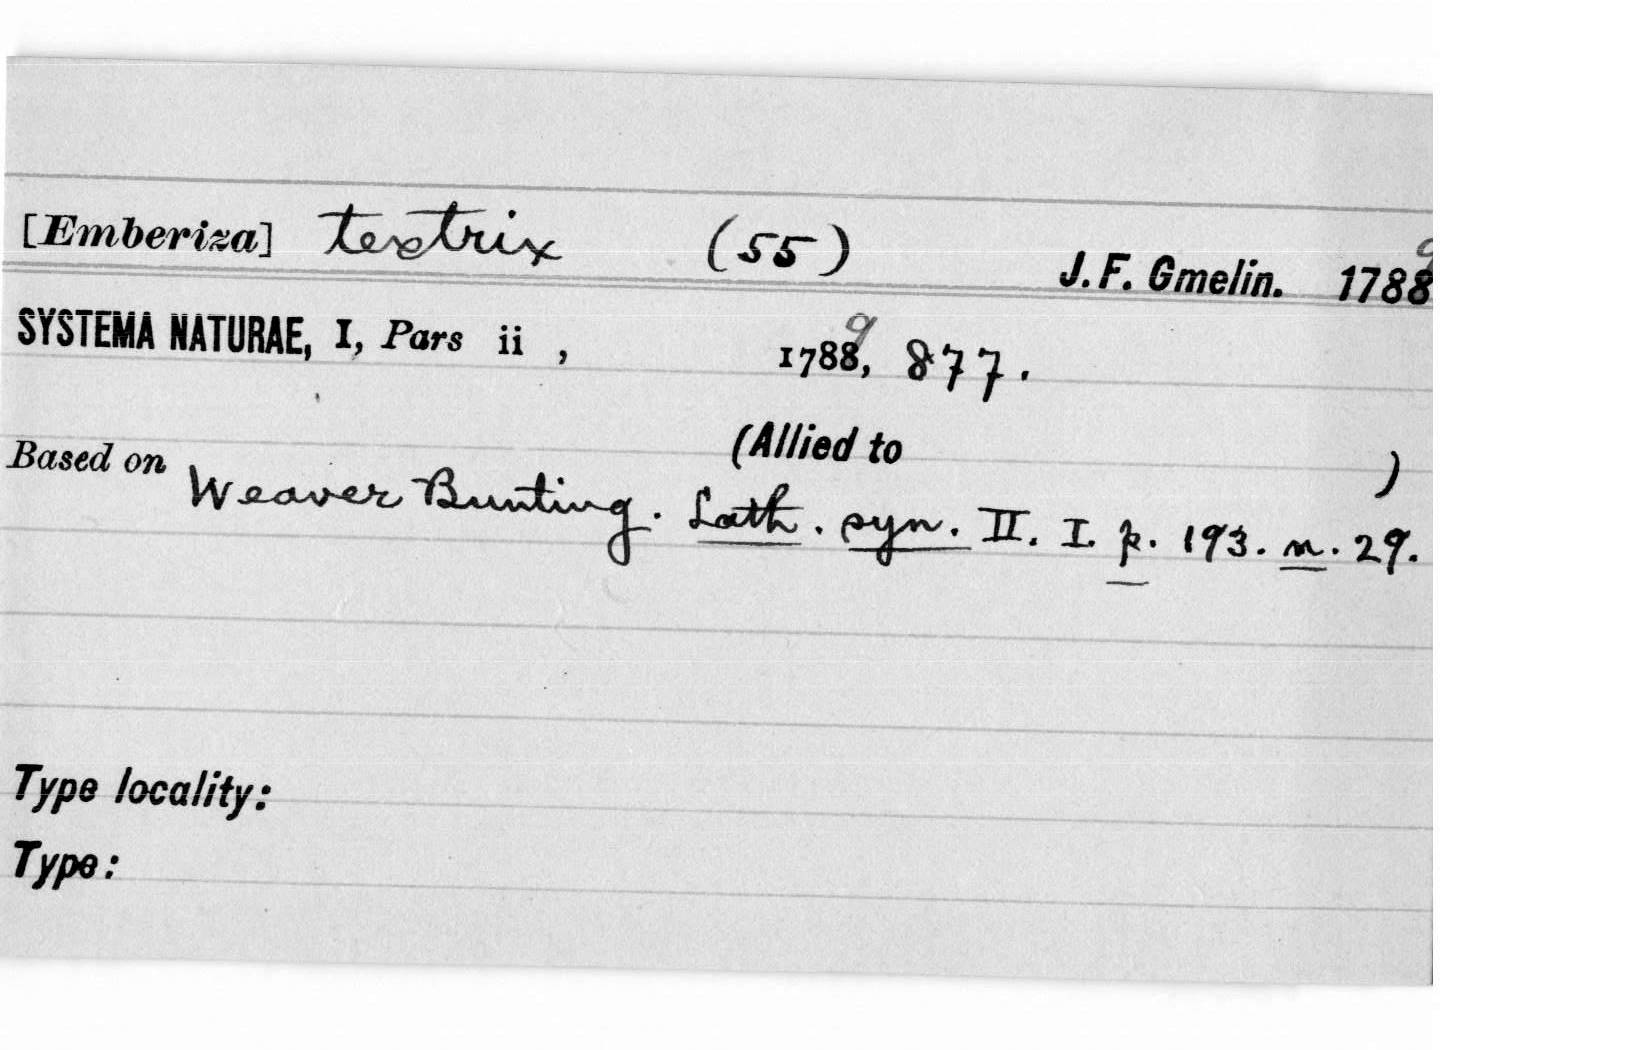 [Emberiza] textrix (55) J. F. Gmelin. 1788 9
SYSTEMA NATURAE, I, Pars ii , 1788 9, 877.
(Allied to )
Based on Weaver Bunting. Lath. syn. II. I. p. 193. n. 29.
Type locality:
Type: